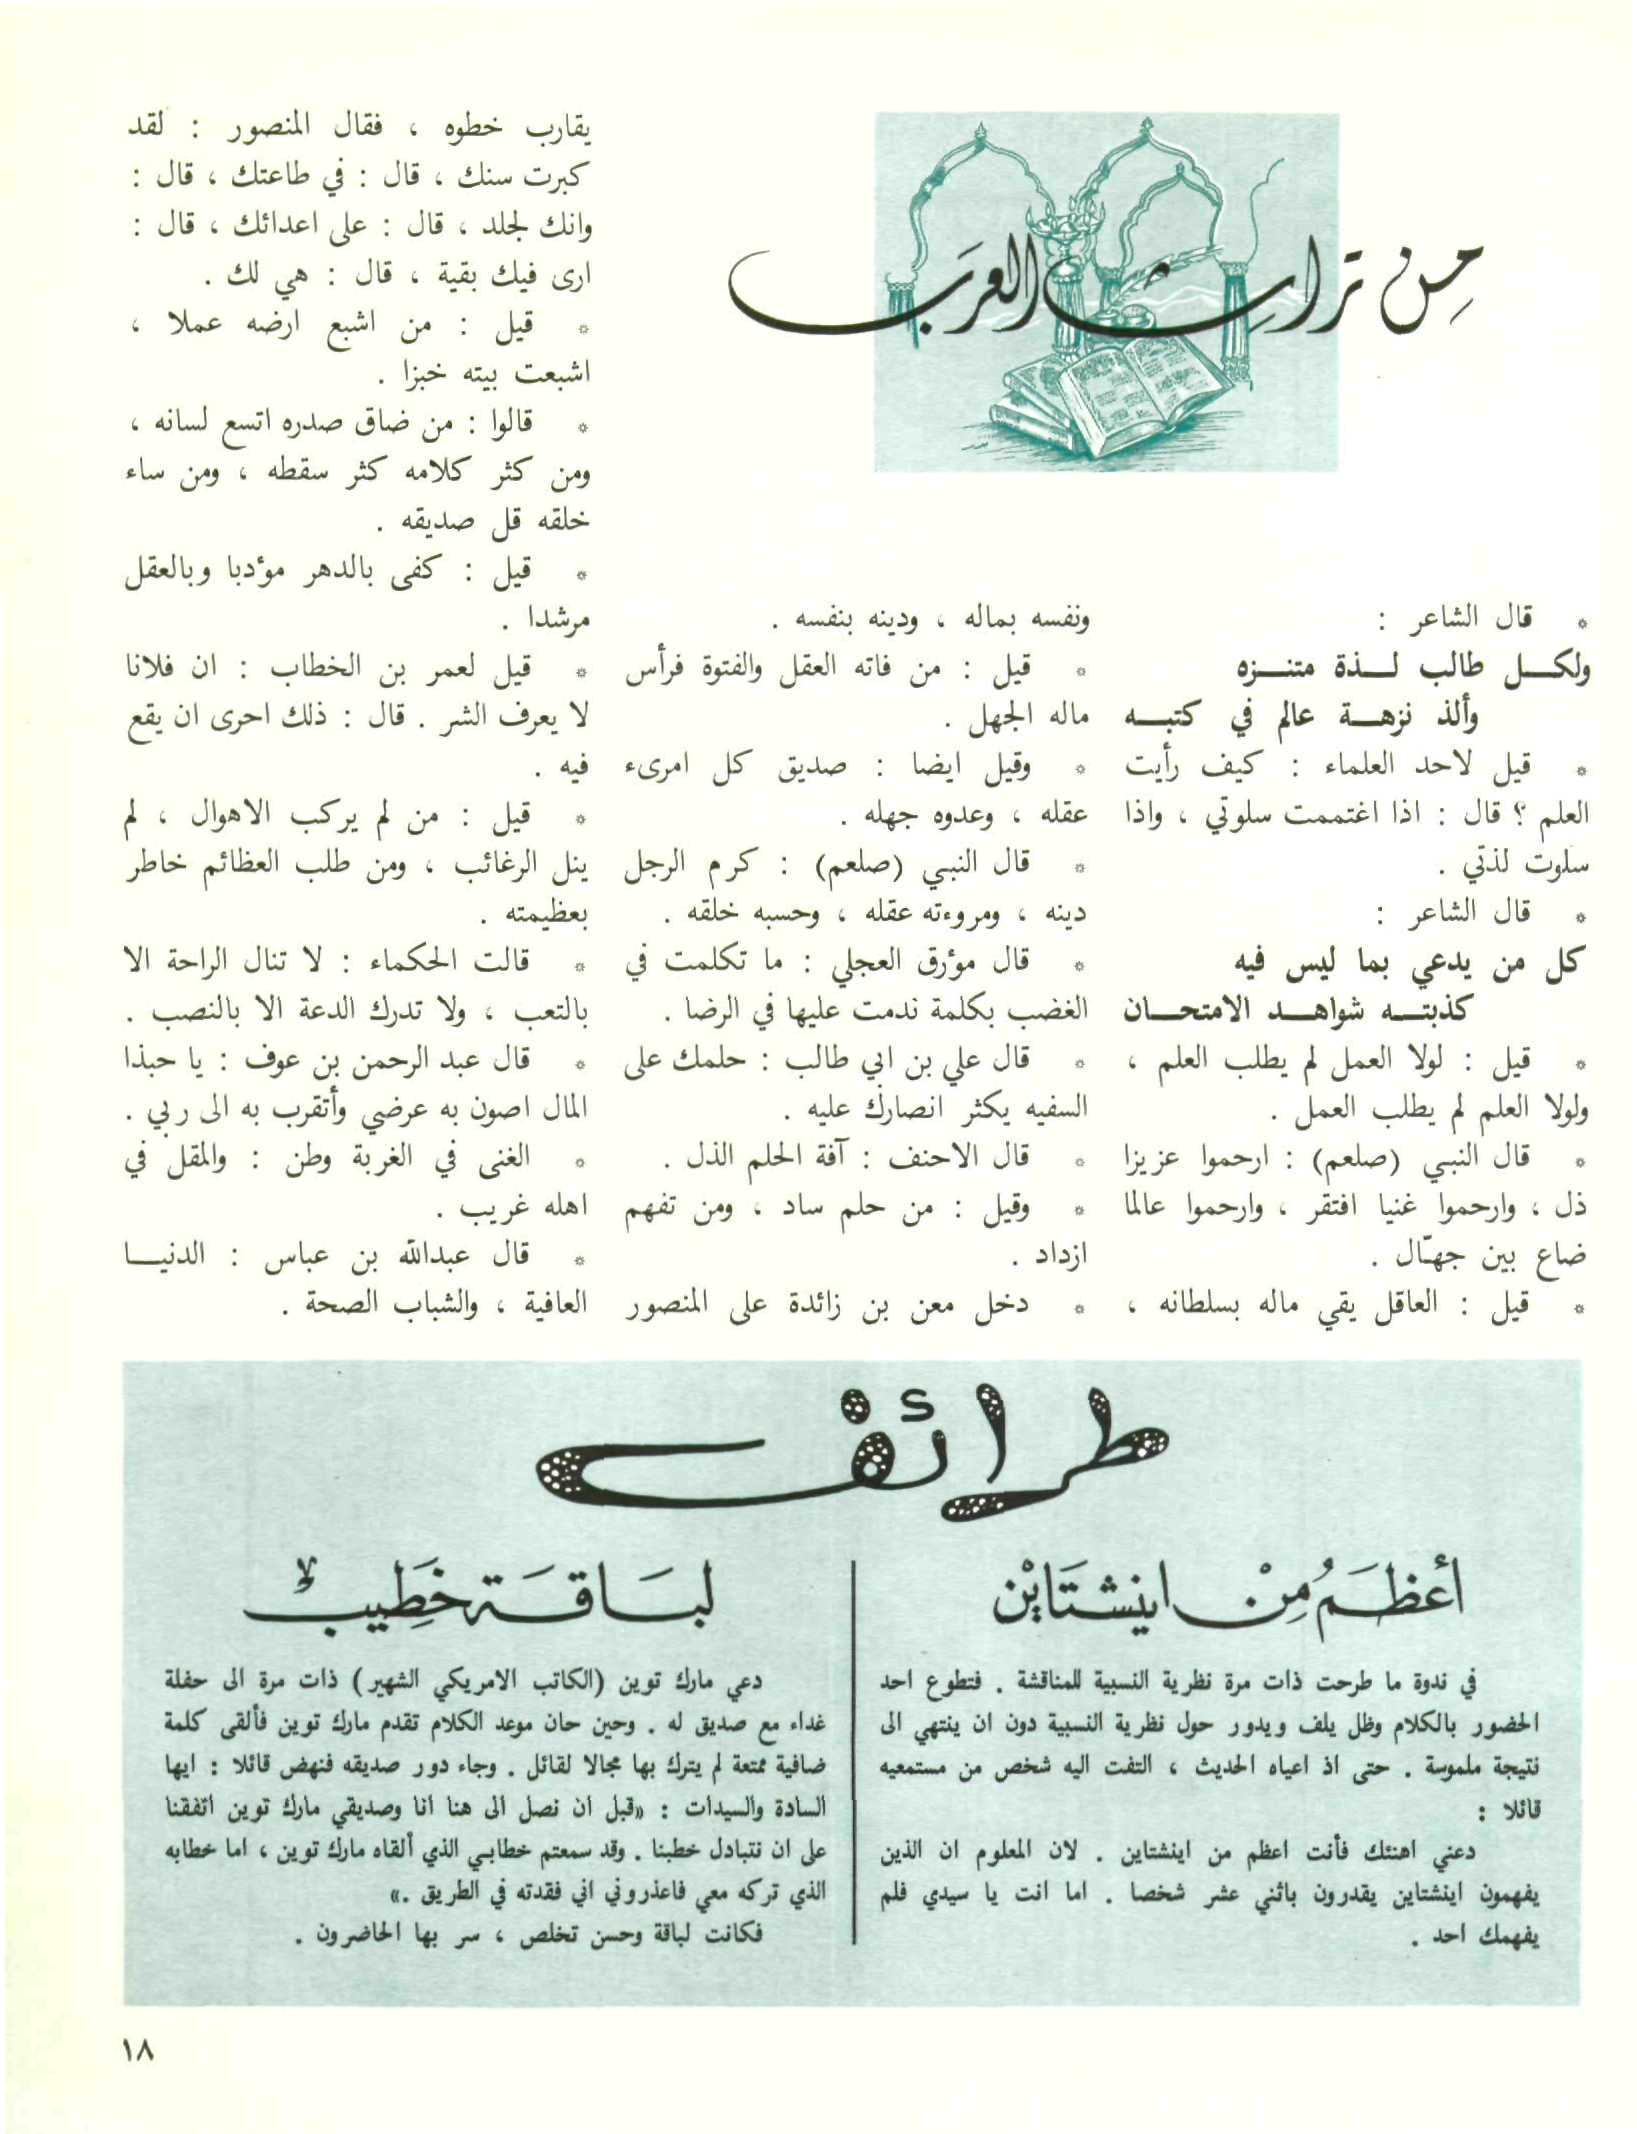 من تراث العرب
* قال الشاعر :
ولكــل طالب لــذة متنــزه
وألذ نزهــة عالم في كتبــه
* قيل لاحد العلماء : كيف رأيت
العلم ؟ قال : اذا اغتممت سلوتي ، واذا
سلوت لذتي .
* قال الشاعر :
كل من يدعي بما ليس فيه
كذبتــه شواهــد الامتحــان
* قيل : لولا العمل لم يطلب العلم ،
ولولا العلم لم يطلب العمل .
* قال النبي (صلعم) : ارحموا عزيزا
ذل ، وارحموا غنيا افتقر ، وارحموا عالما
ضاع بين جهّال .
* قيل : العاقل يقي ماله بسلطانه ،
ونفسه بماله ، ودينه بنفسه .
* قيل : من فاته العقل والفتوة فرأس
ماله الجهل .
* وقيل ايضا : صديق كل امرىء
عقله ، وعدوه جهله .
* قال النبي (صلعم) : كرم الرجل
دينه ، ومروءته عقله ، وحسبه خلقه .
* قال مؤرق العجلي : ما تكلمت في
الغضب بكلمة ندمت عليها في الرضا .
* قال علي بن ابي طالب : حلمك على
السفيه يكثر انصارك عليه .
* قال الاحنف : آفة الحلم الذل .
* وقيل : من حلم ساد ، ومن تفهم
ازداد .
* دخل معن بن زائدة على المنصور
يقارب خطوه ، فقال المنصور : لقد
كبرت سنك ، قال : في طاعتك ، قال :
وانك لجلد ، قال : على اعدائك ، قال :
ارى فيك بقية ، قال : هي لك .
* قيل : من اشبع ارضه عملا ،
اشبعت بيته خبزا .
* قالوا : من ضاق صدره اتسع لسانه ،
ومن كثر كلامه كثر سقطه ، ومن ساء
خلقه قل صديقه .
* قيل : كفى بالدهر مؤدبا وبالعقل
مرشدا .
* قيل لعمر بن الخطاب : ان فلانا
لا يعرف الشر . قال : ذلك احرى ان يقع
فيه .
* قيل : من لم يركب الاهوال ، لم
ينل الرغائب ، ومن طلب العظائم خاطر
بعظيمته .
* قالت الحكماء : لا تنال الراحة الا
بالتعب ، ولا تدرك الدعة الا بالنصب .
* قال عبد الرحمن بن عوف : يا حبذا
المال اصون به عرضي وأتقرب به الى ربي .
* الغنى في الغربة وطن : والمقل في
اهله غريب .
* قال عبدالله بن عباس : الدنيــا
العافية ، والشباب الصحة .
طرائف
أعظَمُ مِنْ اينشتَاين
في ندوة ما طرحت ذات مرة نظرية النسبية للمناقشة . فتطوع احد
الحضور بالكلام وظل يلف ويدور حول نظرية النسبية دون ان ينتهي الى
نتيجة ملموسة . حتى اذ اعياه الحديث ، التفت اليه شخص من مستمعيه
قائلا :
دعني اهنئك فأنت اعظم من اينشتاين . لان المعلوم ان الذين
يفهمون اينشتاين يقدرون باثني عشر شخصا . اما انت يا سيدي فلم
يفهمك احد .
لبَاقَة خَطِيب
دعي مارك توين (الكاتب الامريكي الشهير) ذات مرة الى حفلة
غداء مع صديق له . وحين حان موعد الكلام تقدم مارك توين فألقى كلمة
ضافية ممتعة لم يترك بها مجالا لقائل . وجاء دور صديقه فنهض قائلا : ايها
السادة والسيدات : «قبل ان نصل الى هنا انا وصديقي مارك توين اتفقنا
على ان نتبادل خطبنا . وقد سمعتم خطابي الذي ألقاه مارك توين ، اما خطابه
الذي تركه معي فاعذروني اني فقدته في الطريق .»
فكانت لباقة وحسن تخلص ، سر بها الحاضرون .
١٨